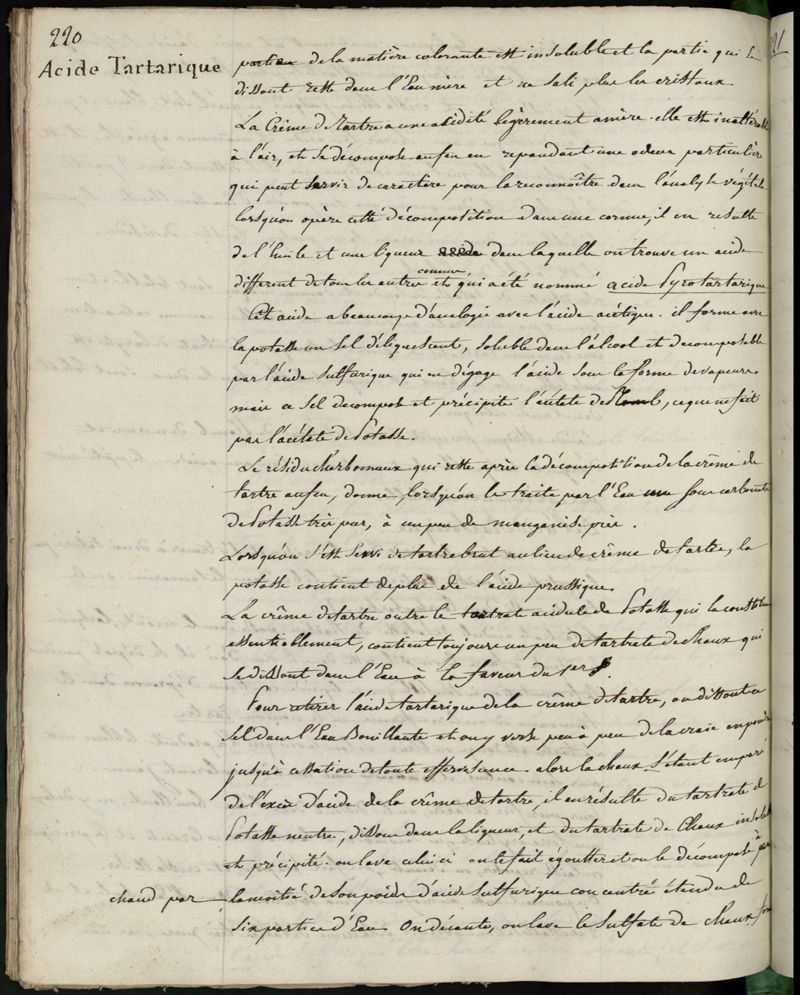 220
Acide Tartarique
partie de la matière colorante est insoluble et la partie qui se
dissout reste dans l'Eau mère et ne sali plus les cristaux.
La Crême de Tartre a une acidité légèrement amère. elle est inaltérable
à l'air, et se décompose au feu en repandant une odeur particulière
qui peut servir de caractère pour la reconnoître dans l'analyse végétale
lorsqu'on opère cette décomposition dans une cornue, il en resulte
de l'huile et une liqueur acide dans laquelle on trouve un acide
différent de tous les autres connus et qui a été nommé acide Pyrotartarique
Cet acide a beaucoup d'analogie avec l'acide acétique. il forme avec
la potasse un sel déliquescent, soluble dans l'alcool et decomposable
par l'acide sulfurique qui en dégage l'acide sous la forme de vapeurs.
mais ce sel decompose et précipite l'acétate de Plomb, ce que ne fait
pas l'acétate de Potasse.
Le résidu charbonneux qui reste après la décomposition de la crême de
tartre au feu, donne, lorsqu'on le traite par l'Eau un sous carbonate
de Potasse très pur, à un peu de manganèse près.
Lorsqu'on s'est servi de tartre brut au lieu de crême de tartre, la
potasse contient de plus de l'acide prussique.
La crême de tartre outre le tartrate acidule de Potasse qui la constitue
essentiellement, contient toujours un peu de tartrate de chaux qui
se dissout dans l'Eau à la faveur du 1er S.
Pour retirer l'acide tartarique de la crême de tartre, on dissout ce
sel dans l'Eau Bouillante et on y verse peu à peu de la craie en poudre
jusqu'à cessation de toute effervescence. alors la chaux s'étant emparé
de l'excès d'acide de la crême de tartre, il en résulte du tartrate de
Potasse neutre, dissous dans la liqueur, et du tartrate de Chaux insoluble
et précipité. on lave celui ci on le fait égoutter et on le décompose à
chaud par la moitié de son poids d'acide sulfurique concentré étendu de
six parties d'Eau. On décante, on lave le sulfate de chaux